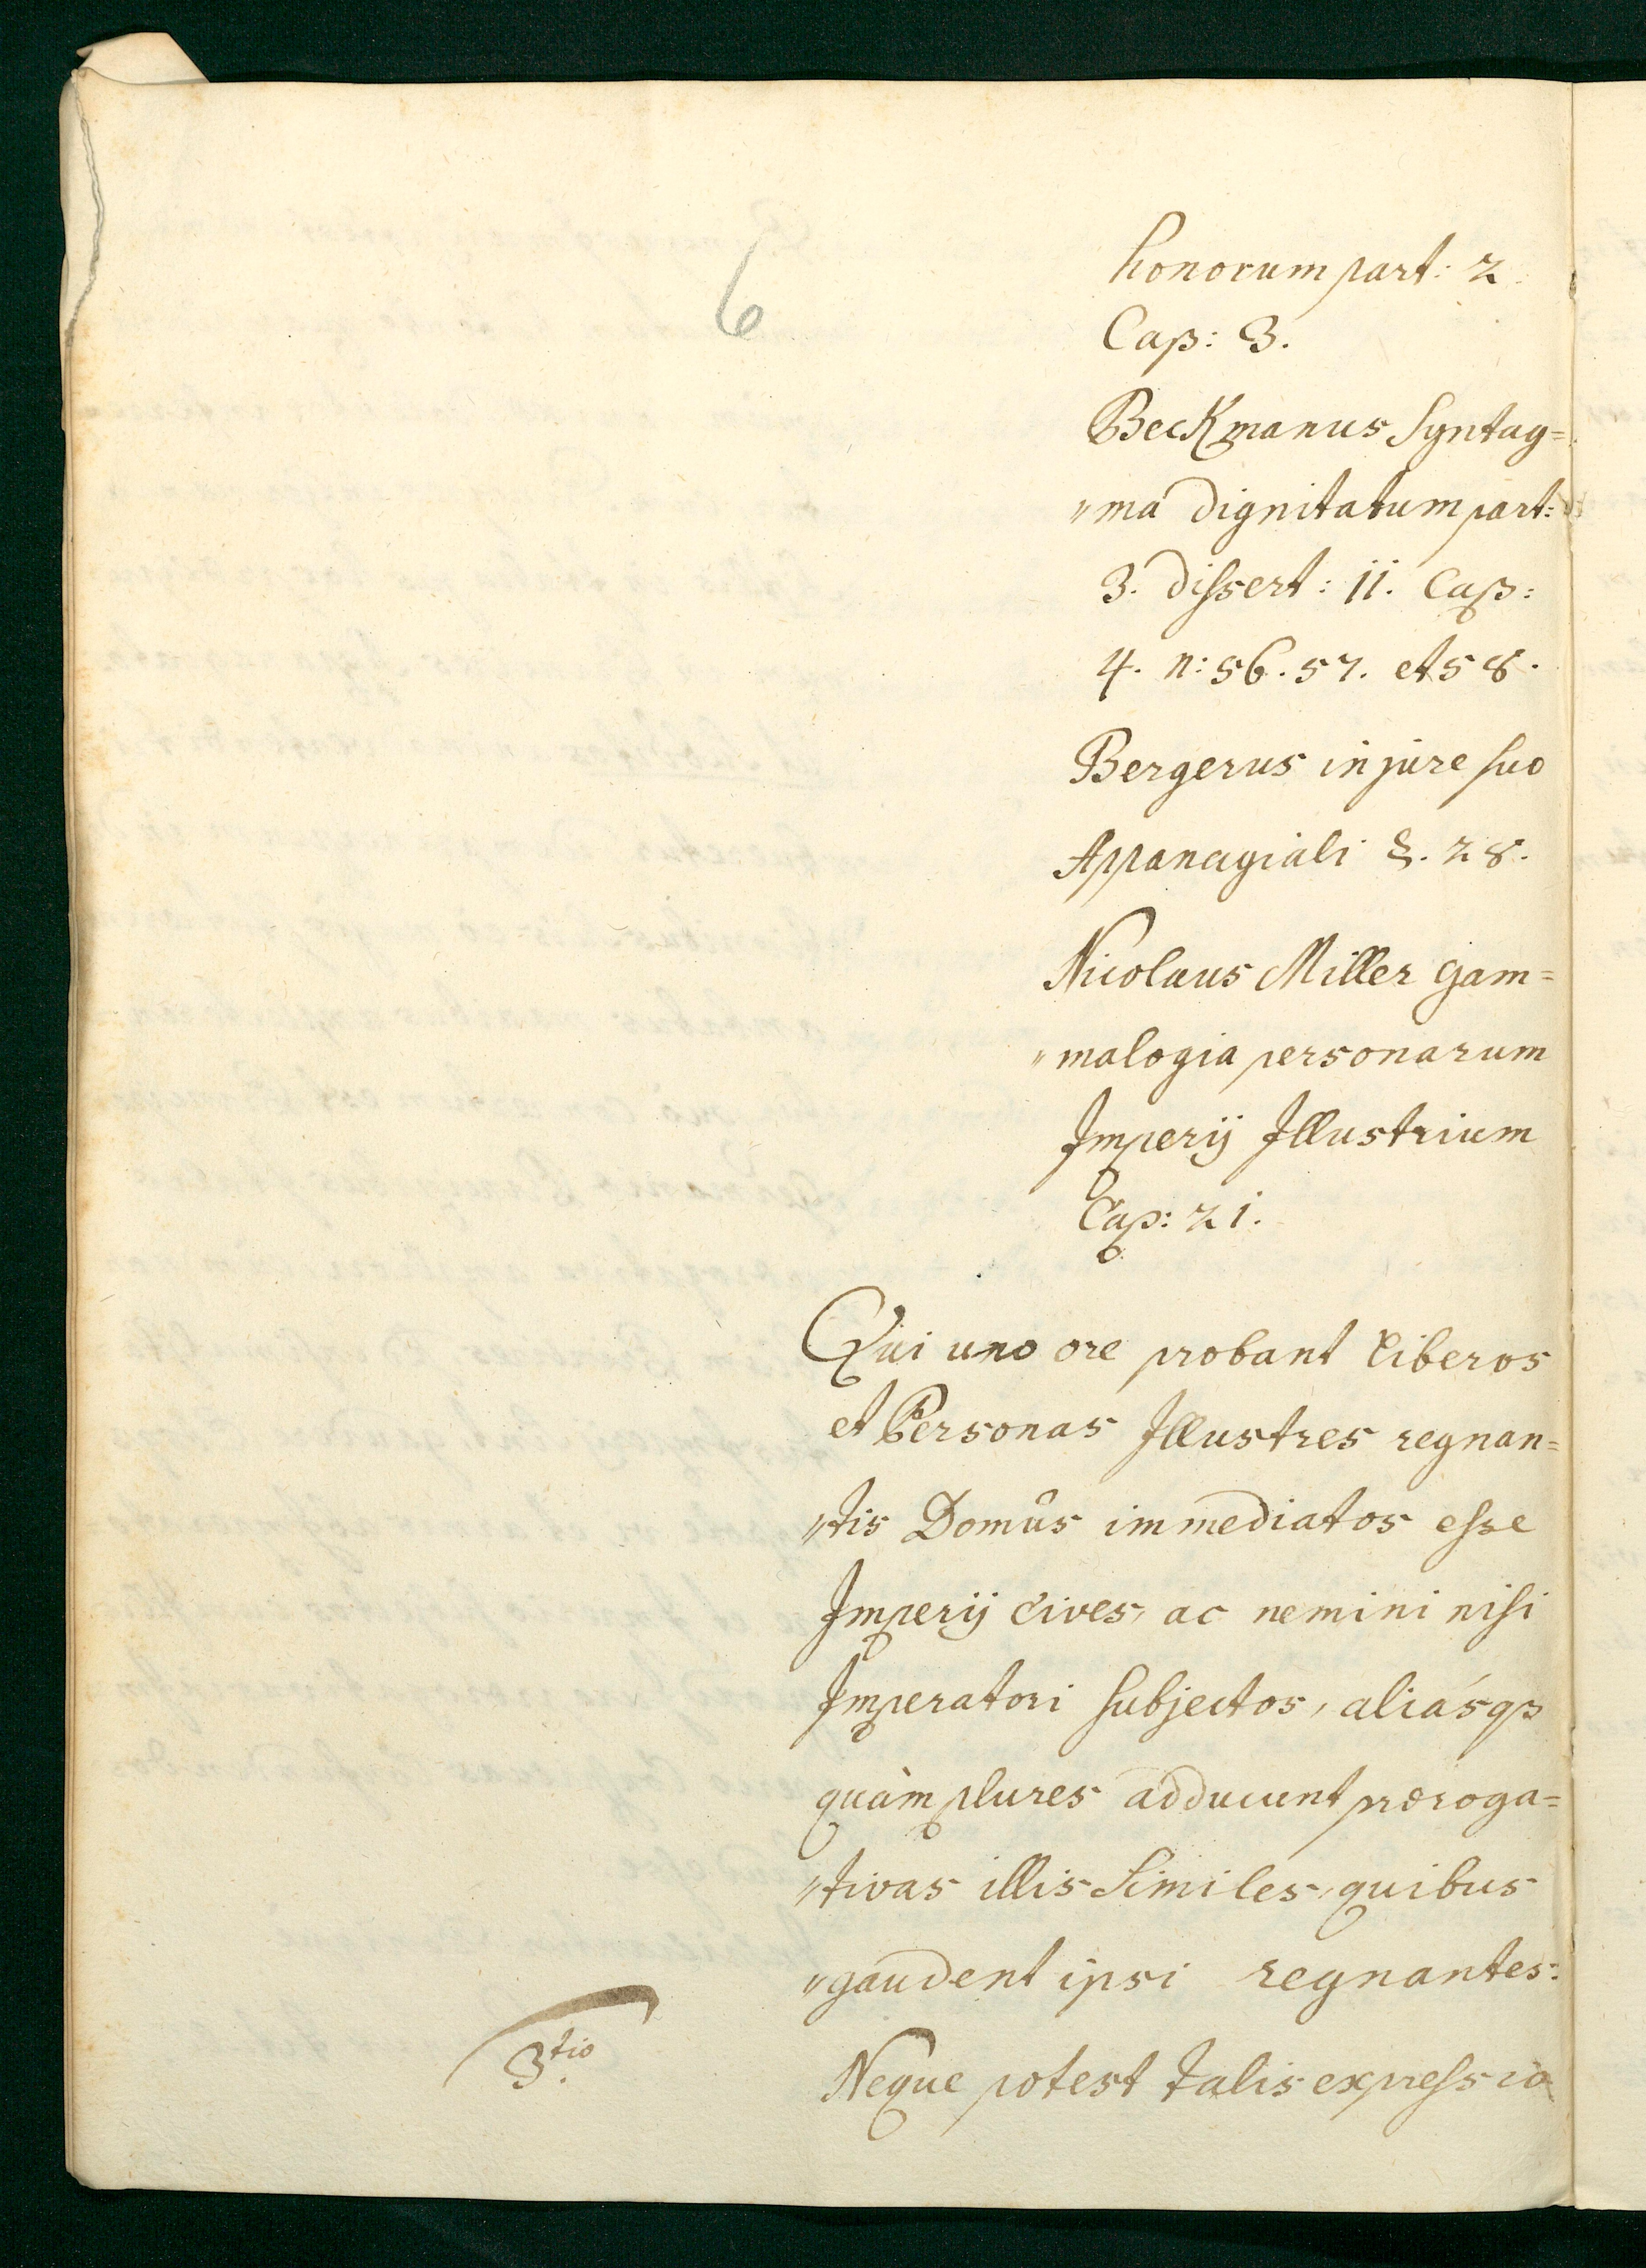 6
honorum part: 2
Cap: 3.
Beckmanus Syntag=
"ma dignitatum part:
3. dissert: 11. Cap:
4. n: 56. 57. et 58.
Bergerus in jure suo
Appanagiali §. 28.
Nicolaus Miller Gam=
"malogia personarum
Imperij Illustrium
Cap: 21.
Qui uno ore probant liberos
et Personas Illustres regnan=
"tis Domûs immediatos esse
Imperij Cives, ac nemini nisi
Imperatori subjectos, aliásq3
quàm plures adducunt præroga=
"tivas illis similes, quibus
"gaudent ipsi regnantes:
3tio. Neque potest talis expressio